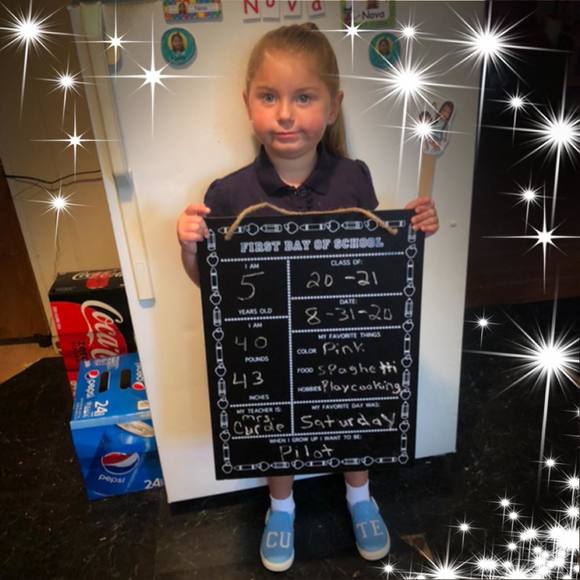 Nova
Nova
FIRST DAY OF SCHOOL
I AM
5
YEARS OLD
I AM
40
POUNDS
43
INCHES
MY TEACHER IS:
mrs.
Curde
CLASS OF:
20-21
DATE:
8-31-20
MY FAVORITE THINGS
COLOR Pink
FOOD spaghetti
HOBBIES Playcooking
MY FAVORITE DAY WAS:
Saturday
WHEN I GROW UP I WANT TO BE:
Pilot
Coca-Cola
pepsi
24
pepsi
24
CU TE